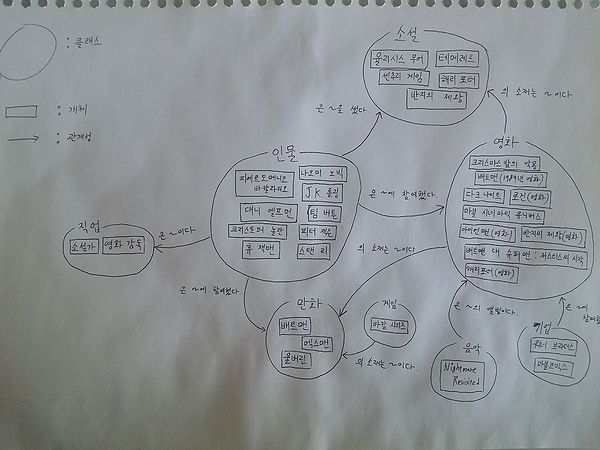 : 클래스
: 개체
: 관계성
소설
율리시스 무어
테메레르
센추리 게임
해리 포터
반지의 제왕
은 ~을 썼다.
의 소재는 ~이다
인물
피에르도메니코 바칼라리오
나오미 노빅
JK 롤링
대니 엘프먼
팀 버튼
크리스토퍼 놀란
피터 잭슨
휴 잭맨
스탠 리
은 ~에 참여했다.
영화
크리스마스 밤의 악몽
배트맨(1989년 영화)
다크 나이트
로건(영화)
마블 시네마틱 유니버스
아이언맨(영화)
반지의 제왕(영화)
배트맨 대 슈퍼맨: 저스티스의 시작
해리포터(영화)
직업
소설가
영화 감독
은 ~이다
의 소재는 ~이다
은 ~에 참여했다.
만화
배트맨
엑스맨
울버린
게임
아캄 시리즈
의 소재는 ~이다.
은 ~의 앨범이다.
음악
Nightmare
Revisited
은 ~에
참여했
기업
워너 브라더스
마블코믹스